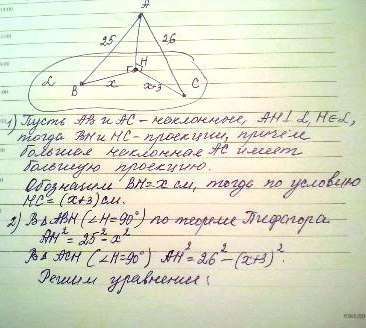 A
25
26
H
α
B
x
x+3
C
1) Пусть АВ и АС - наклонные, AH⊥α, H∈α,
тогда ВН и НС - проекции, причём
большая наклонная АС имеет
большую проекцию.
Обозначим ВН=х см, тогда по условию
НС=(х+3) см.
2) В△АВН (∠H=90°) по теореме Пифагора
AH²=25²-x²
В△АСН (∠H=90°) AH²=26²-(x+3)².
Решим уравнение: